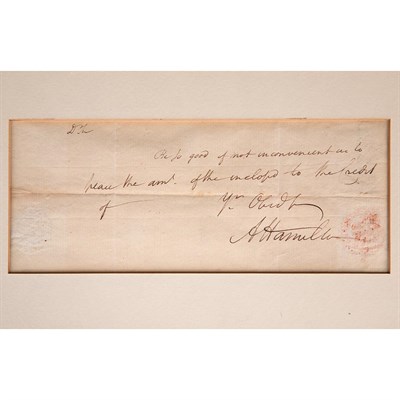 Dr Sir
Be so good if not inconvenient as to
place the amt. of the inclosed to the Credit
of Yr. Obedt
A Hamilton